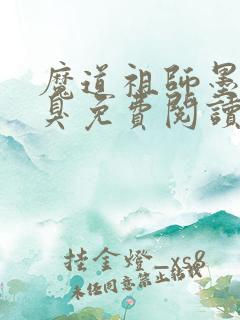 魔道祖師墨
臭免費閱讀
挂金燈_xs8
未经同意禁止转载